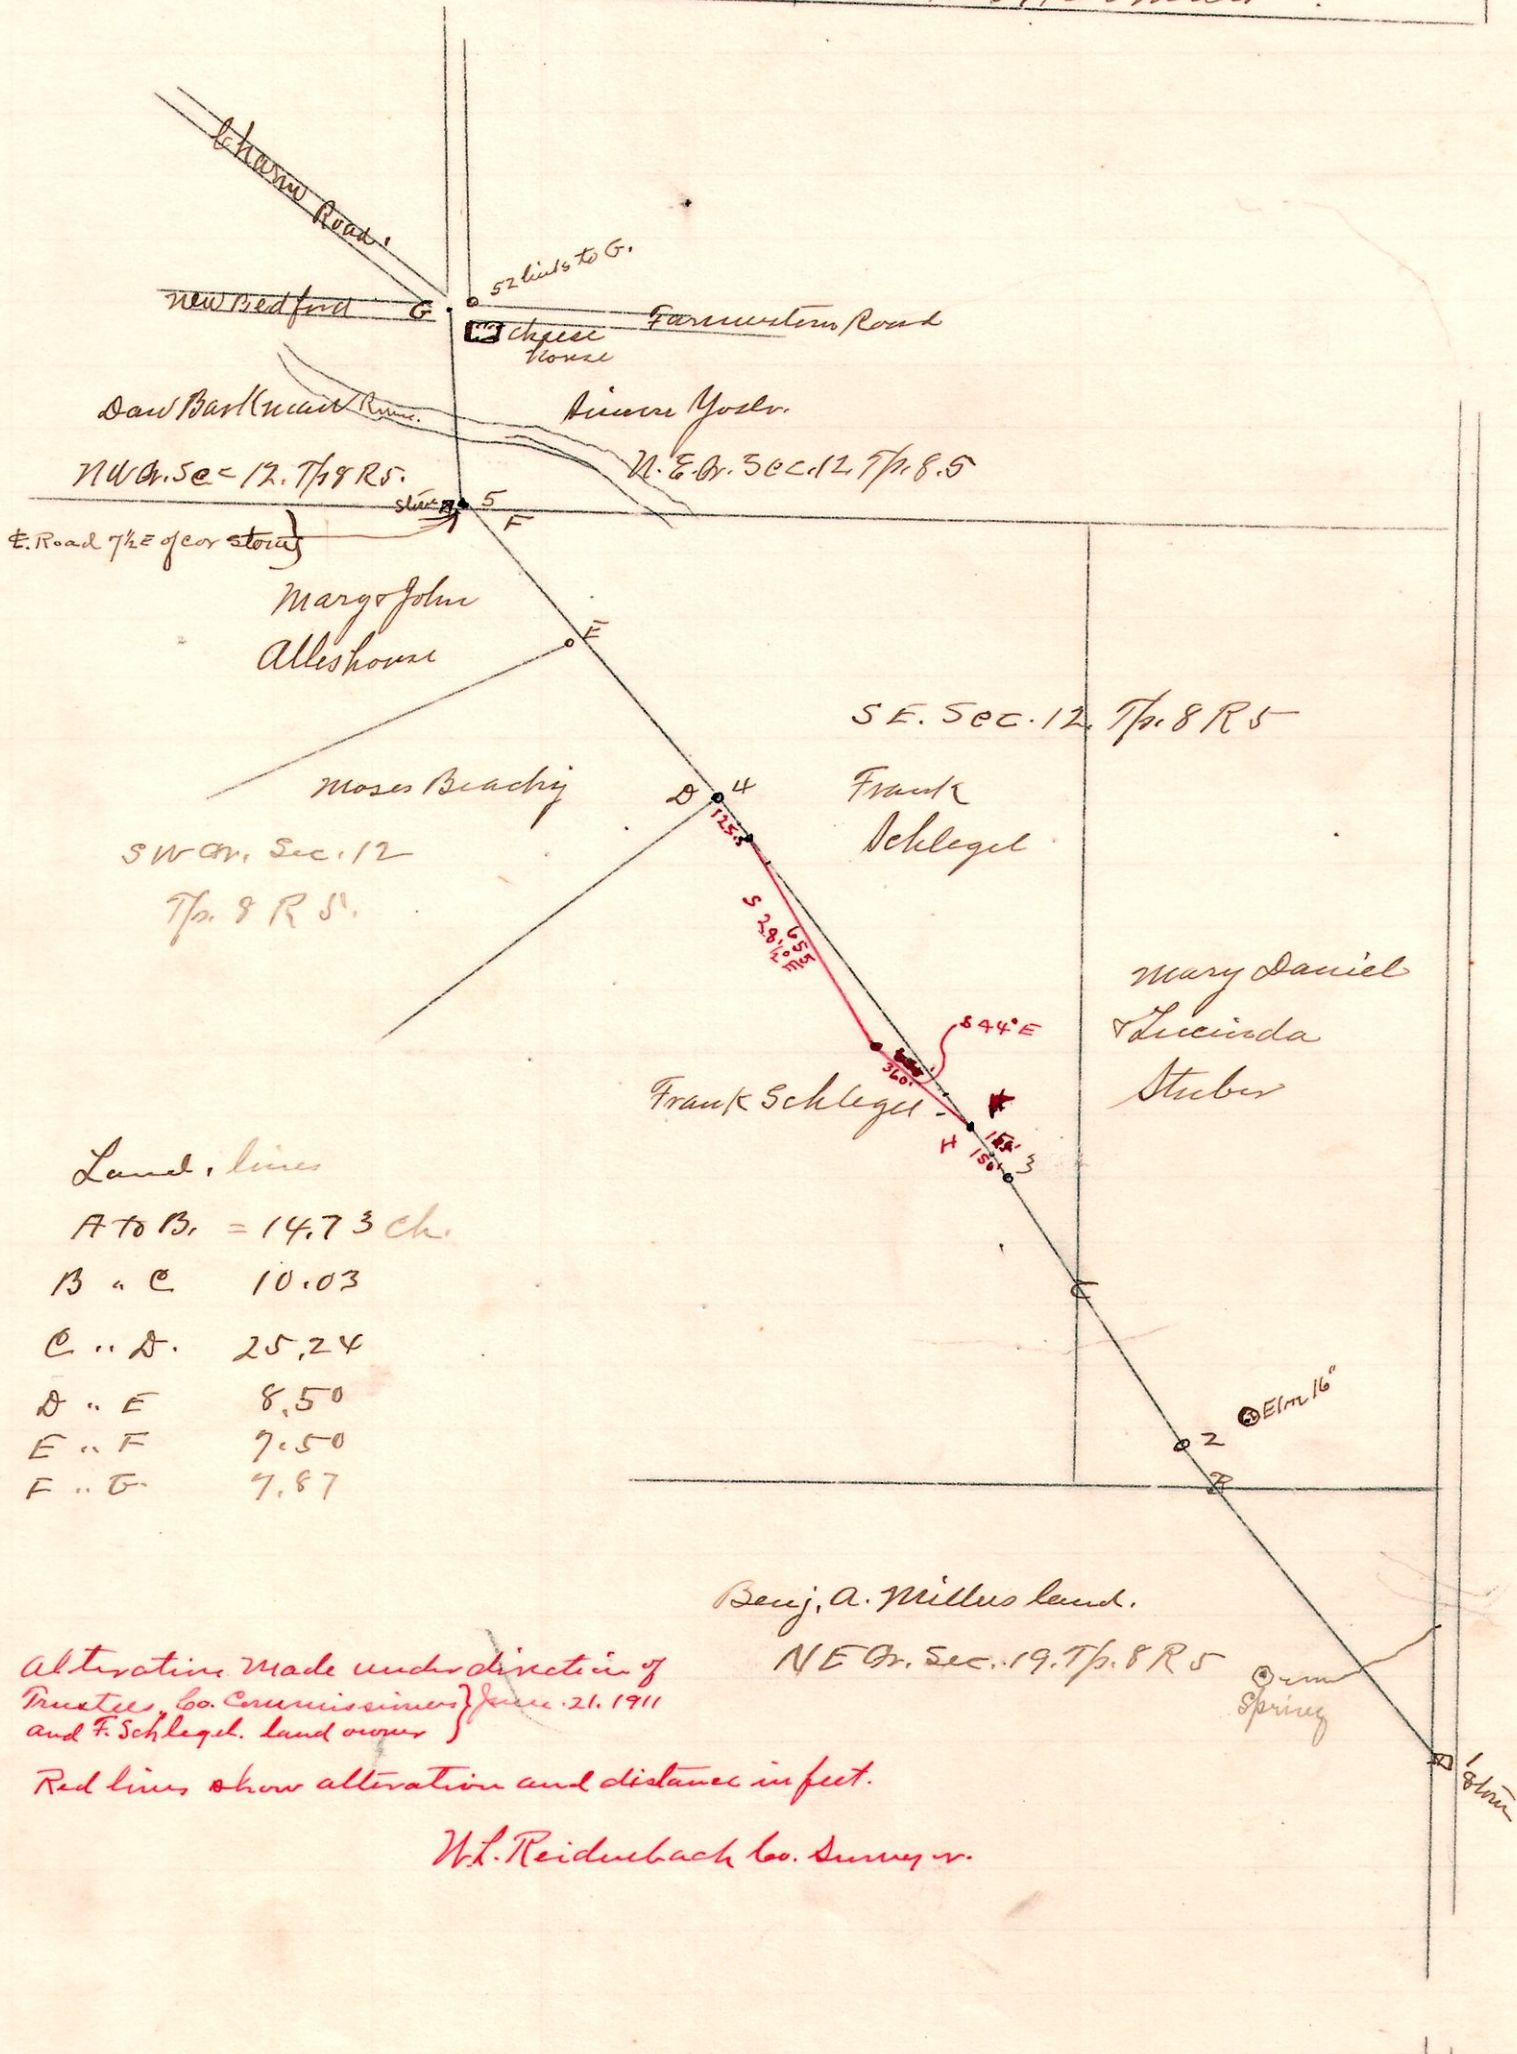 Charm Road.
52 links to G.
New Bedford
G
Farmerstown Road
Cheese
House
Dan Barkman
Run.
Simon Yoder.
NW Qr. Sec 12. Tp 8 R 5.
N. E. Qr. Sec. 12. Tp. 8. 5
Stone
5
F
Road 7½ E of cor stone
Mary & John
Alleshouse
E
SE. Sec. 12. Tp. 8 R 5
Moses Beachy
D 4
Frank
Schlegel
125.5
SW Qr. Sec. 12
Tp. 8 R 5.
S 28½° E
655
Mary Daniel
& Lucinda
Stuber
S 44° E
360'
Frank Schlegel
H
150'
3
Land. lines
A to B. = 14.73 ch.
B " C 10.03
C " D. 25.24
D " E 8.50
E " F 7.50
F " G. 7.87
C
Elm 16"
2
B
Benj. A. Millers land.
NE Qr. Sec. 19. Tp. 8 R 5
Spring
1
Stone
Alteration made under direction of
Trustees, Co. Commissioners } June. 21. 1911
and F. Schlegel. land owner
Red lines show alteration and distance in feet.
W. L. Reidenbach Co. Surveyor.